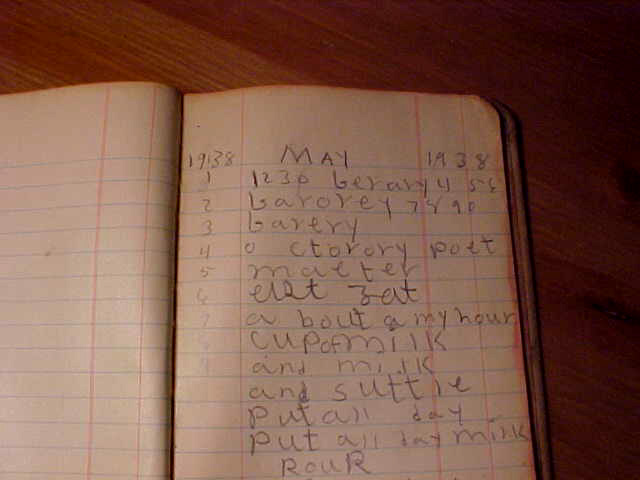 1938 MAY 1938
1 1230 berary 4 56
2 barorey 7890
3 barery
4 o ctorory poet
5 matter
6 eat 3at
7 a bout a my hour
8 CUPofmilk
9 and milk
and suttle
put all day
put all day milk
ROUR